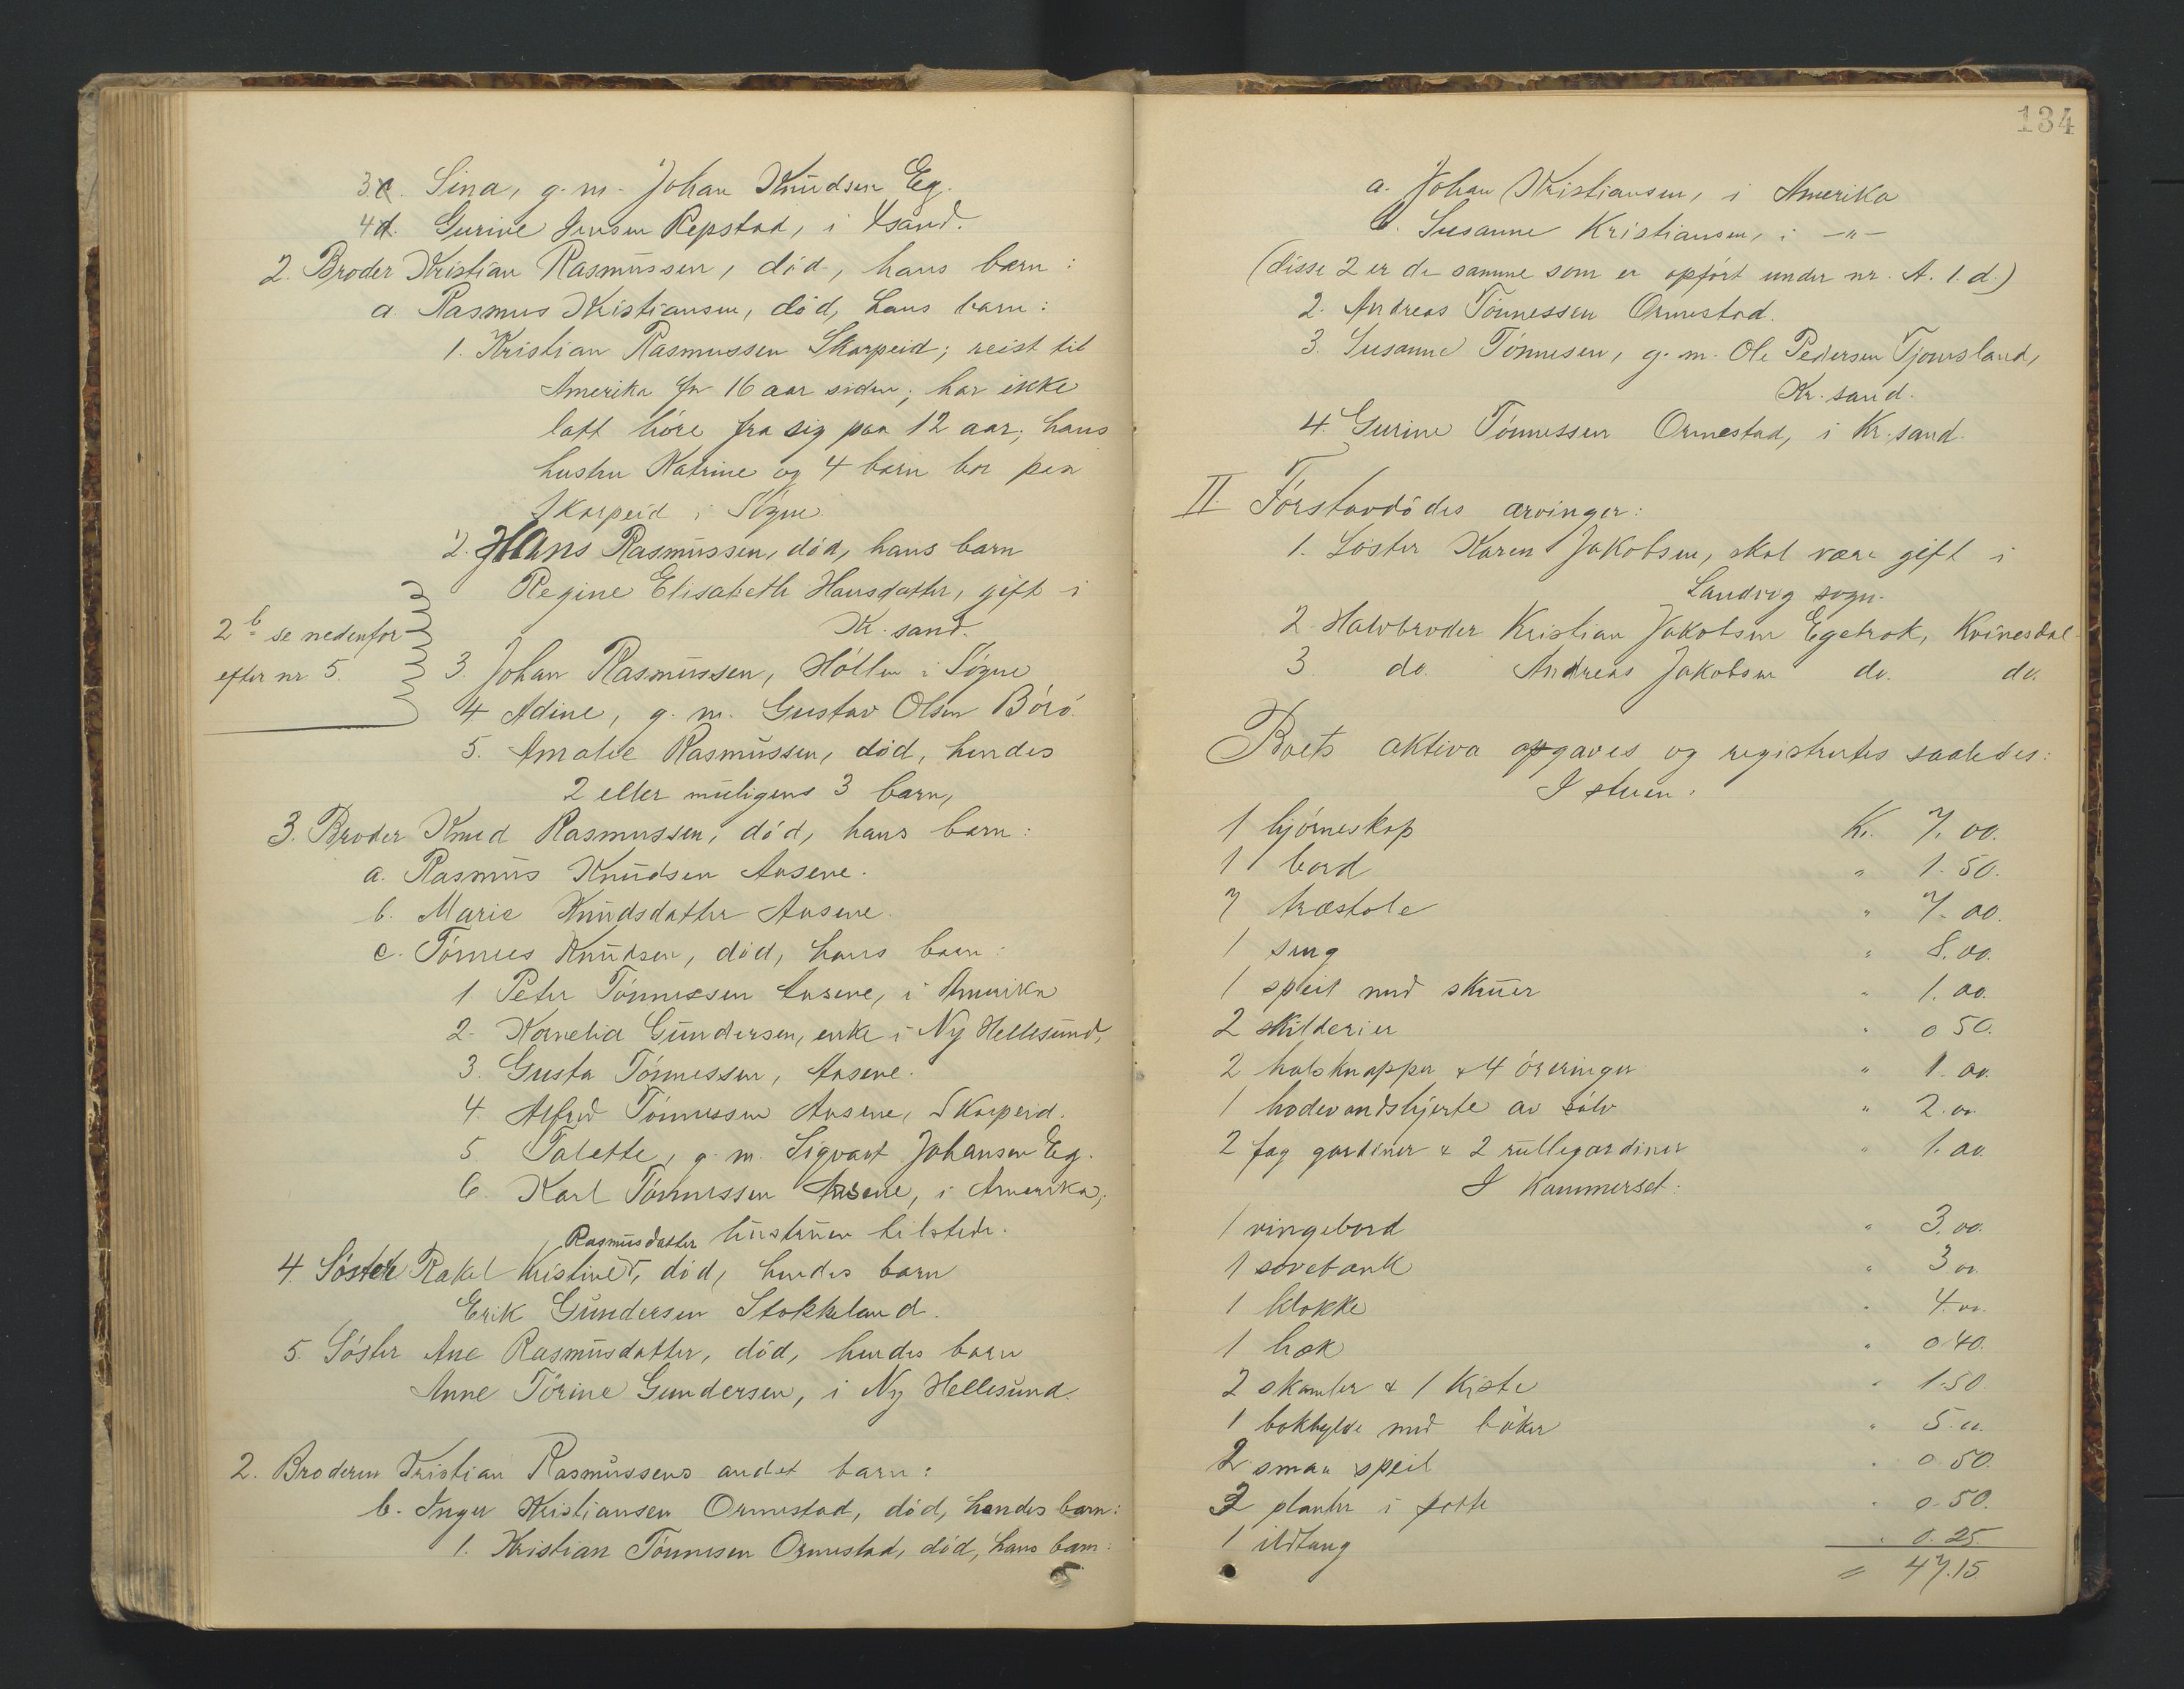 3. Sina, g. m. Johan Knudsen Eg.
4. Gurine Jensen Repstad, i Xsand.
2. Broder Kristian Rasmussen, död, hans barn:
a. Rasmus Kristiansen, död, hans barn:
1. Kristian Rasmussen Skarpeid; reist til
Amerika for 16 aar siden; har ikke
latt höre fra sig paa 12 aar; hans
hustru Katrine og 4 barn bor paa
Skarpeid i Sögne
2. Hans Rasmussen, död, hans barn
Regine Elisabeth Hansdatter, gift i
Kr.sand.
2 b se nedenfor
efter nr 5.
3. Johan Rasmussen, Höllen i Sögne
4 Adine, g. m. Gustav Olsen Börö.
5. Amalie Rasmussen, död, hendes
2 eller muligens 3 barn,
3. Broder Knud Rasmussen, död, hans barn:
a. Rasmus Knudsen Aasene.
b. Marie Knudsdatter Aasene.
c. Tönnes Knudsen, död, hans barn:
1 Peter Tönnessen Aasene, i Amerika
2. Kornelia Gundersen, enke i Ny Hellesund,
3. Gusta Tönnessen, Aasene.
4. Alfred Tönnessen Aasene, Skarpeid.
5. Talette, g. m. Sigvart Johansen Eg.
6. Karl Tönnessen Aasene, i Amerika;
hustruen tilstede.
Rasmusdatter
4. Söster Rakel Kristine, död, hendes barn
Erik Gundersen Stokkeland.
5. Söster Ane Rasmusdatter, död, hendes barn
Anne Törine Gundersen, i Ny Hellesund.
2. Broderen Kristian Rasmussens andet barn:
b. Inger Kristiansen Ormestad, död, hendes barn:
1. Kristian Tönnesen Ormestad, död, hans barn:
134
a. Johan Kristiansen, i Amerika
b. Susanne Kristiansen, i —"—
(disse 2 er de samme som er opfört under nr. A. 1. d.)
2. Andreas Tönnessen Ormestad.
3. Susanne Tönnesen, g. m. Ole Pedersen Tjomsland,
Kr.sand.
4. Gurine Tönnessen Ormestad, i Kr.sand.
II. Förstavdödes arvinger:
1. Söster Karen Jakobsen, skal være gift i
Landvig sogn.
2. Halvbroder Kristian Jakobsen Egebrok, Kvinesdal
3. do. Andreas Jakobsen do. do.
Boets aktiva opgaves og registrertes saaledes:
I stuen:
1 hjörneskap Kr. 7.00.
1 bord " 1.50.
7 træstole " 7.00.
1 seng " 8.00.
1 speil med skuer " 1.00.
2 skilderier " 0 50.
2 halsknapper & 4 öreringer " 1.00.
1 hodevandshjerte av sölv " 2.00.
2 fag gardiner & 2 rullegardiner " 1.00
I Kammerset:
1 vingebord " 3.00.
1 sovebænk " 3.00.
1 klokke " 4.00.
1 hæk " 0 40.
2 skamler & 1 kiste " 1.50
1 bokhylde med böker " 5.00.
2 smaa speil " 0 50.
2 planter i potte " 0.50.
1 ildtang " 0.25.
= 47.15.